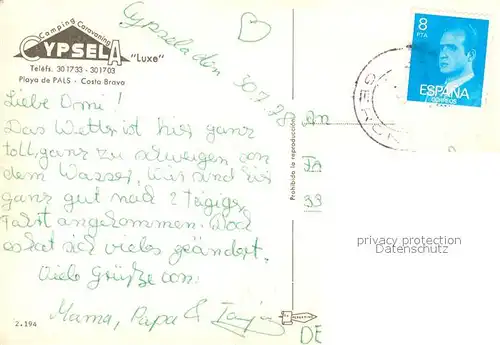 Camping Caravaning
CYPSELA "Luxe"
Teléfs. 301733 - 301703
Playa de PALS - Costa Brava
Cypsela den 30.7.78
B
Liebe Omi!
Das Wetter ist hier ganz
toll, ganz zu schweigen von
dem Wasser, wir sind hier
ganz gut nach 2 tägiger
Fahrt angekommen. Doch
es hat sich vieles geändert.
Viele Grüße von:
Mama, Papa & Tanja
2.194
Prohibida la reproducción
8
PTA
ESPAÑA
CORREOS
An
33
privacy protection
Datenschutz
DE